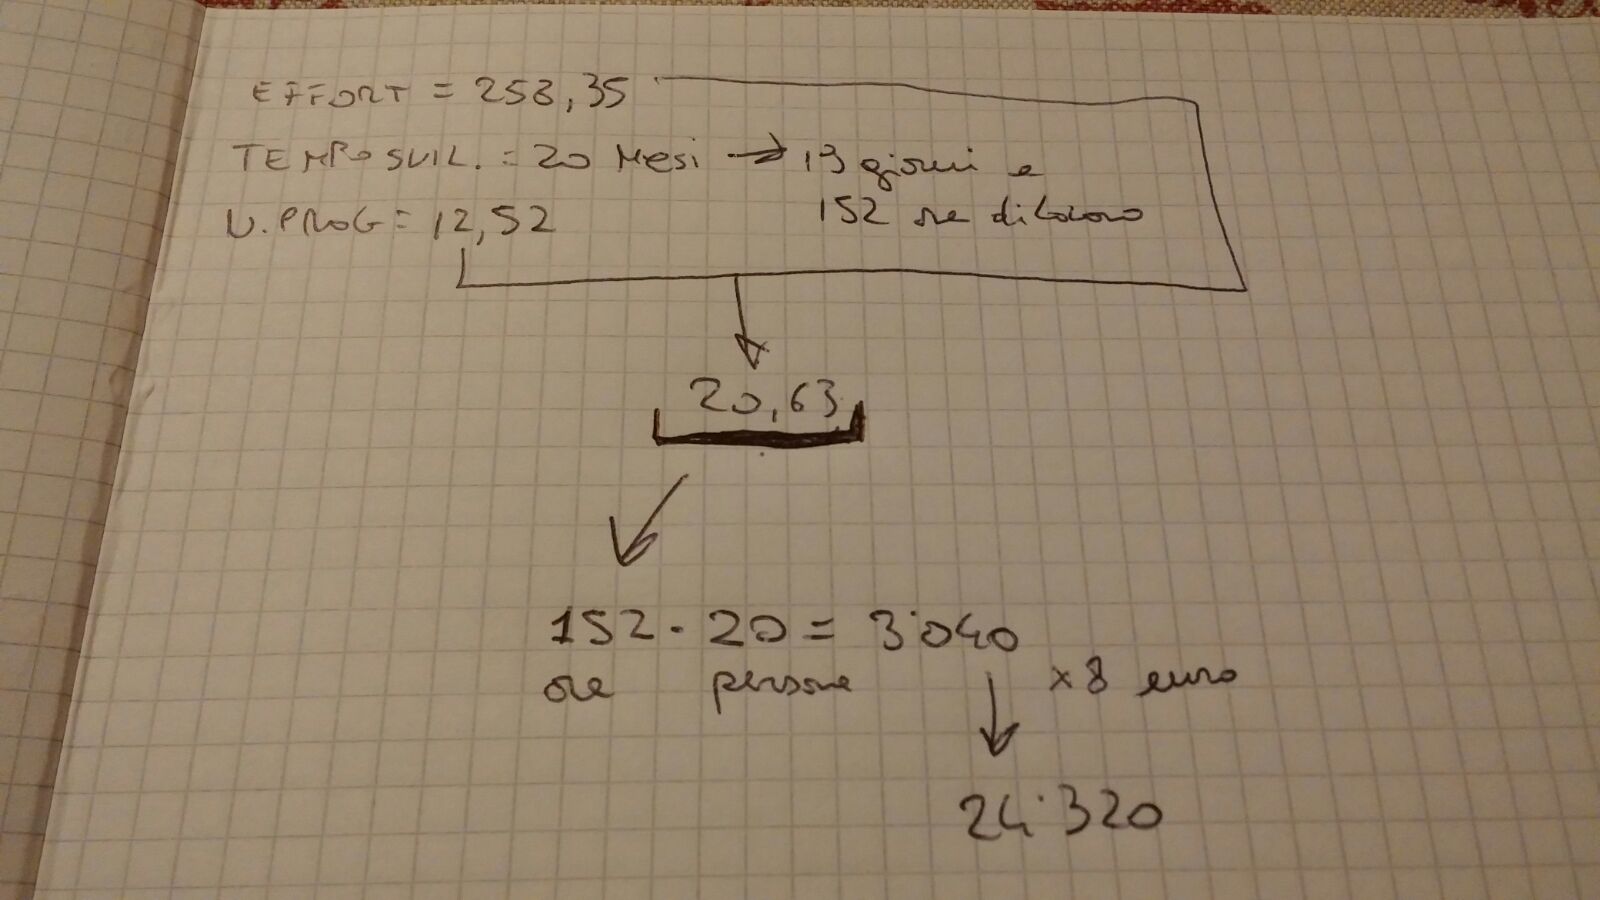 EFFORT = 258,35
TEMPO SVIL. = 20 Mesi → 19 giorni e
152 ore di lavoro
N. PROG = 12,52
20,63
152 · 20 = 3'040
ore persone × 8 euro
24'320